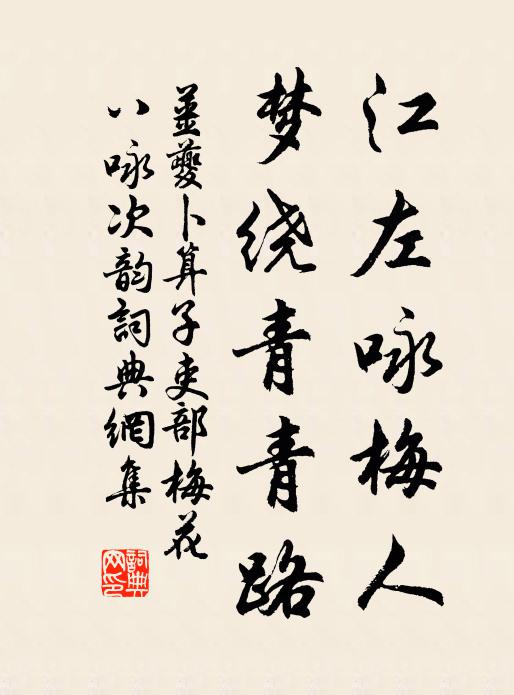 江左咏梅人
梦绕青青路
姜夔卜算子吏部梅花
八咏次韵词典網集
詞典
网印